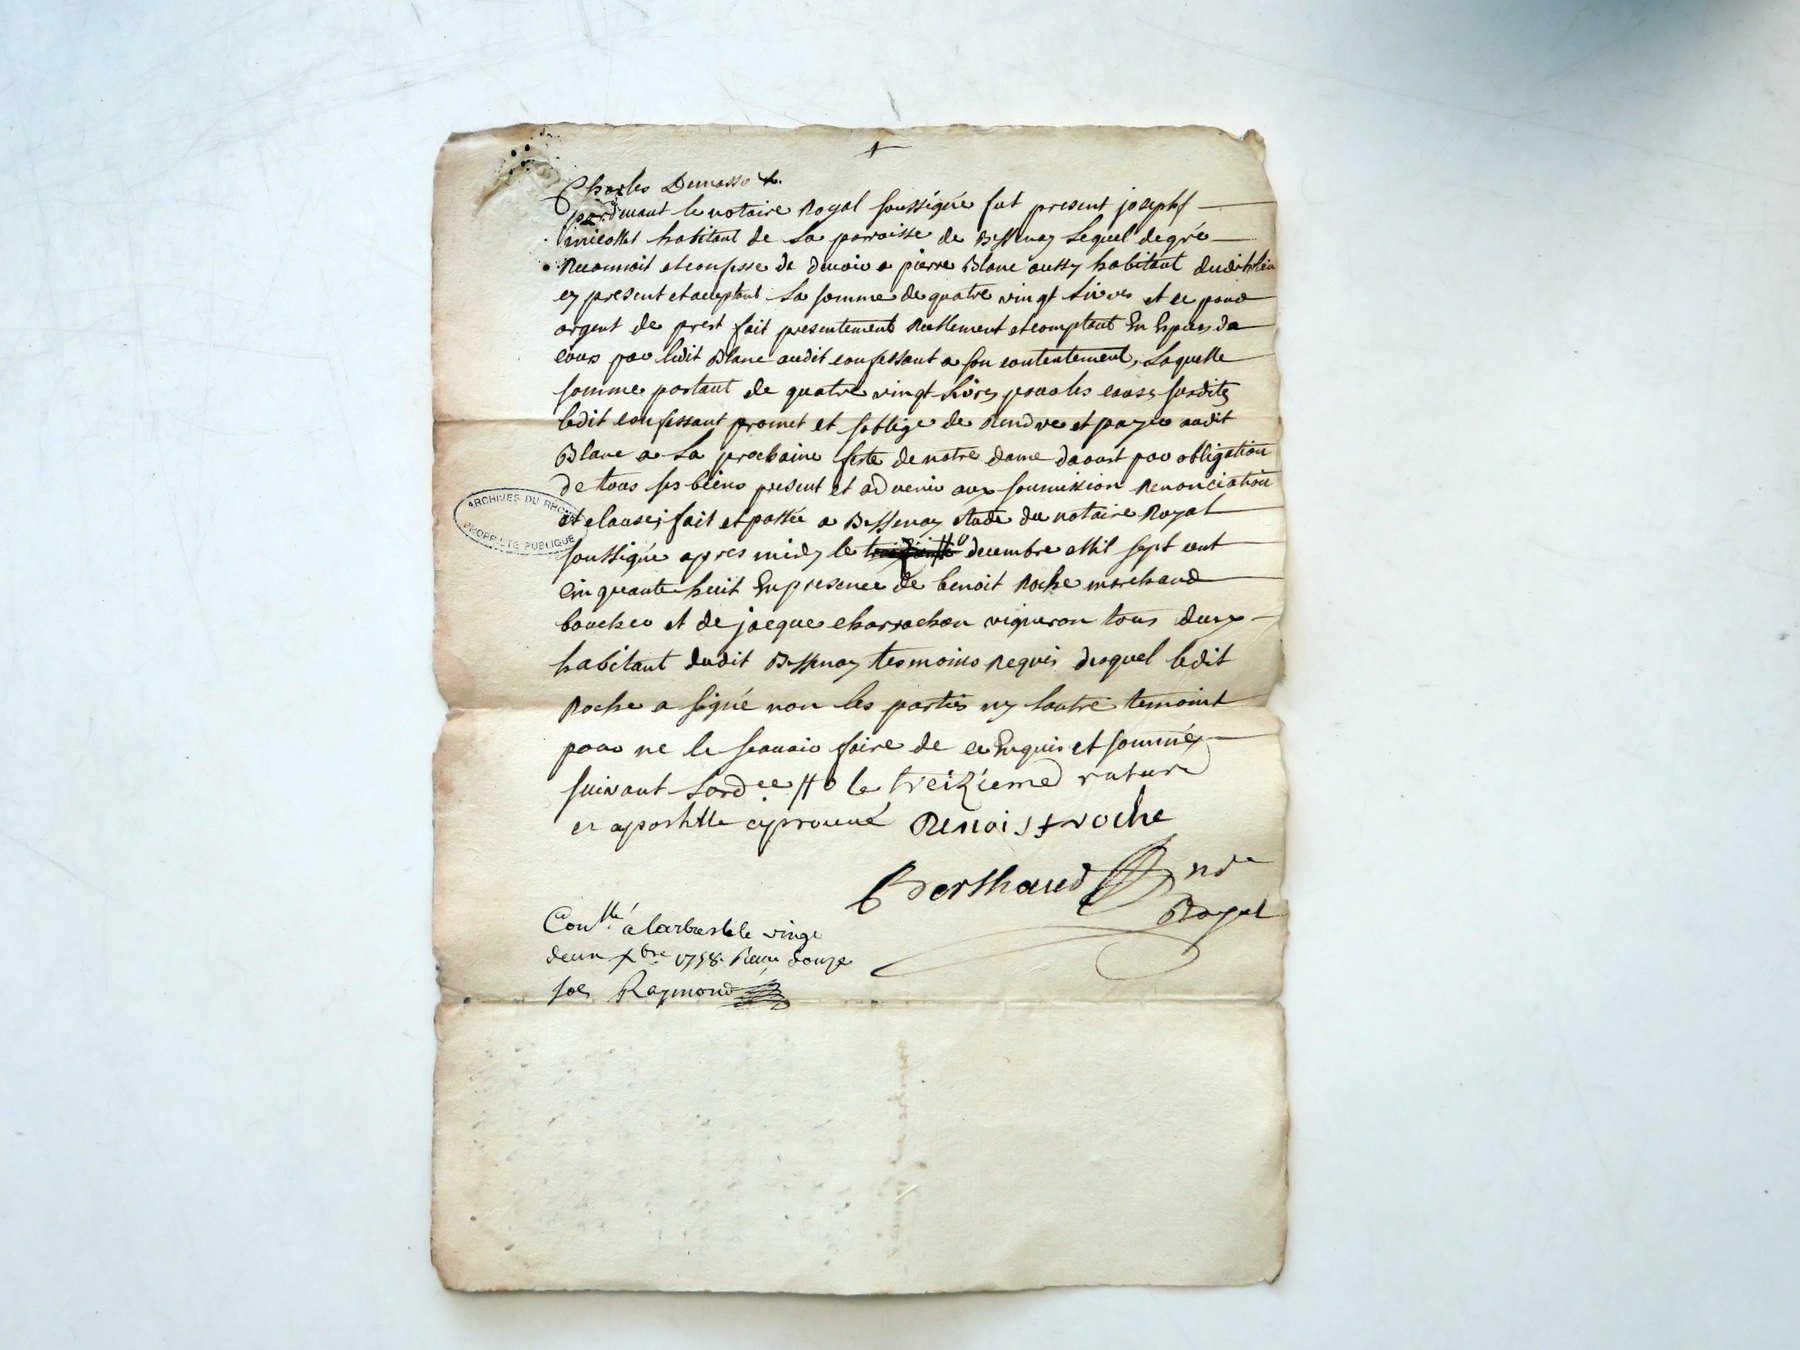 Charles Demasso
pardevant le notaire Royal soussigné fut present joseph
nicollet habitant de la parroisse de Bessenay lequel de gré
Reconnoit et confesse de devoir a pierre Blanc aussy habitant dudit lieu
cy present et aceptant la somme de quatre vingt livres et ce pour
argent de prest fait presentement Reellement et comptant En Espece de
cours par ledit Blanc audit confessant a son contentement, laquelle
somme portant de quatre vingt livres pour les causes susdites
ledit confessant promet et soblige de Rendre et payer audit
Blanc a la prochaine feste de notre dame daoust par obligation
de tous ses biens present et advenir aux soumission Renonciation
et clauses fait et passée a Bessenay etude du notaire Royal
soussigné apres midy le decembre Mil sept cent
cinquante huit En presence de benoit Roche marchand
boucher et de jacque charrachon vigneron tous deux
habitant dudit Bessenay tesmoins Requis desquel ledit
Roche a signé non les parties ny lautre temoint
pour ne le scavoir faire de ce Enquis et sommés
suivant lordce # le treizieme rature
et apostille aprouvé Benoist roche
Berthaud nre
Royal
Conllé a larbresle le vingt
deux xbre 1758. Reçu douze
sols Raymond
ARCHIVES DU RHONE
PROPRIETE PUBLIQUE